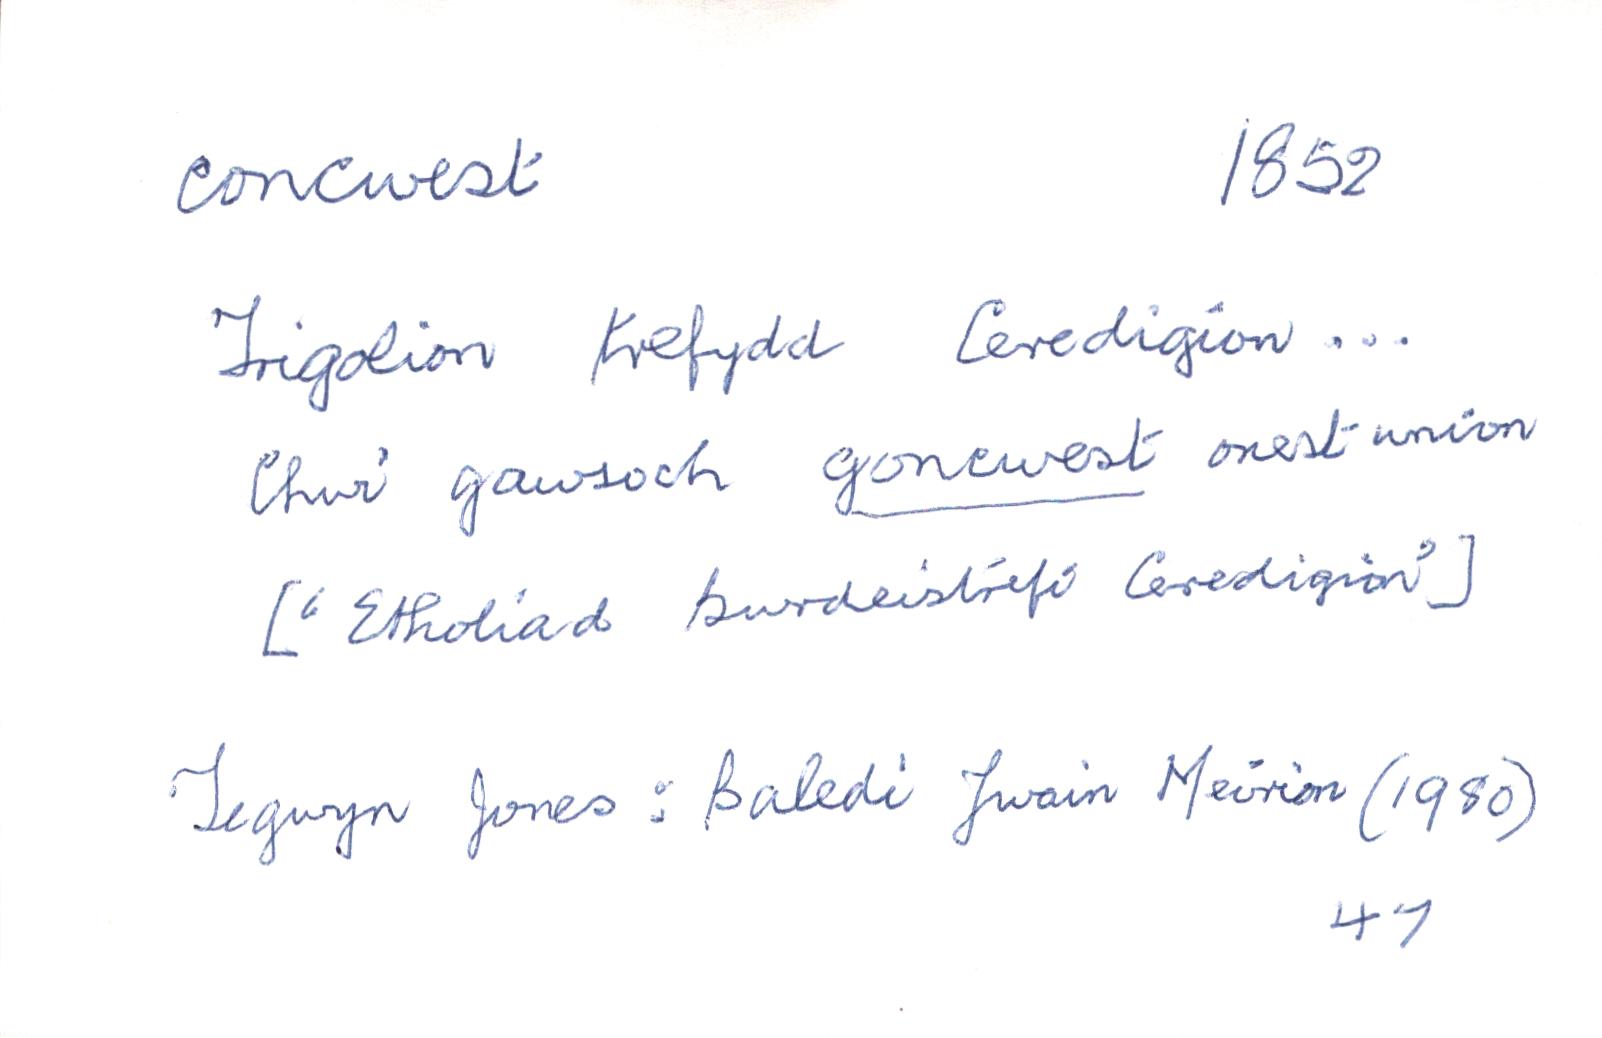 concwest 1852
Trigolion trefydd Ceredigion ...
Chwi gawsoch goncwest onest union
["Etholiad Bwrdeistrefi Ceredigion"]
Tegwyn Jones : Baledi Ywain Meirion (1980)
47